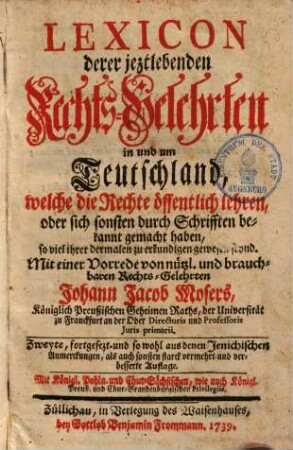 LEXICON
derer jeztlebenden
Rechts-Gelehrten
in und um
Teutschland,
welche die Rechte öffentlich lehren,
oder sich sonsten durch Schrifften be-
kannt gemacht haben,
so viel ihrer dermalen zu erkundigen gewesen synd.
Mit einer Vorrede von nützl. und brauch-
baren Rechts-Gelehrten
Johann Jacob Mosers,
Königlich Preußischen Geheimen Raths, der Universität
zu Franckfurt an der Oder Directoris und Professoris
Juris primarii.
Zweyte, fortgesezt- und so wohl aus denen Jenichischen
Anmerkungen, als auch sonsten starck vermehrt- und ver-
besserte Auflage.
Mit Königl. Pohln. und Chur-Sächsischen, wie auch Königl.
Preuß. und Chur-Brandenburgischen Privilegiis.
Züllichau, in Verlegung des Waisenhauses,
bey Gottlob Benjamin Frommann. 1739.
AUGSBURG